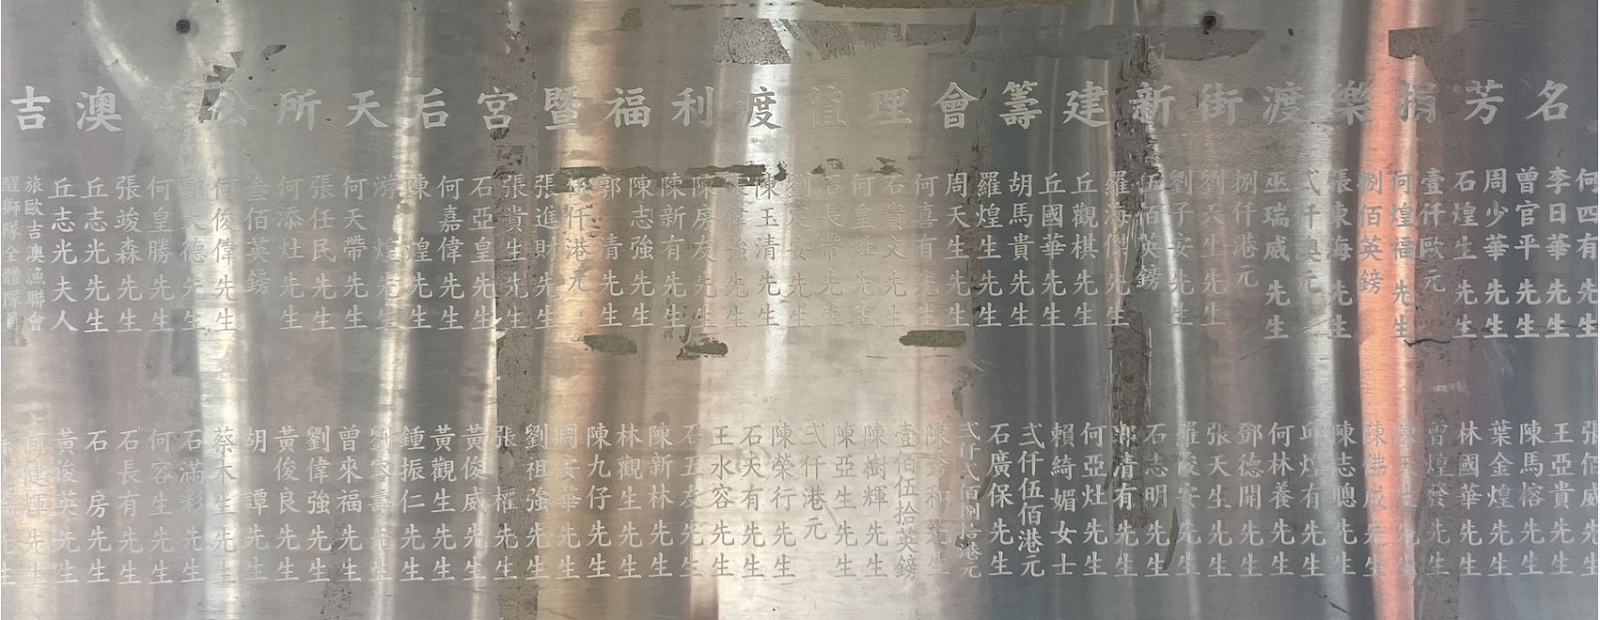 吉澳公所天后宮暨福利度值理會籌建新街渡樂捐芳名
何四有先生
李日華先生
曾官平先生
周少華先生
石煌生先生
壹仟歐元
何煌福先生
捌佰英鎊
張東海先生
弍仟澳元
巫瑞威先生
捌仟港元
劉天生先生
劉子安先生
伍佰英鎊
羅海傑先生
丘觀棋先生
丘國華先生
胡馬貴先生
羅煌生先生
周天生先生
何喜有先生
石貴先生
何皇先生
石長帶先生
劉安先生
陳玉清先生
強先生
陳房友先生
陳新有先生
陳志強先生
郭清先生
仟港元
張進財先生
張貴生先生
石亞皇先生
何嘉偉先生
陳煌先生
游煌先生
何天帶先生
張任民先生
何添灶先生
叁佰英鎊
何俊偉先生
郭天德先生
何皇勝先生
張竣森先生
丘志光先生
丘志光夫人
旅歐吉澳漁聯會
醒獅隊全體隊員
張佰威先生
王亞貴先生
陳馬榕先生
葉金煌先生
林國華先生
曾煌發先生
陳天生先生
陳佛成先生
陳志聰先生
邱煌有先生
何林養先生
鄧德開先生
張天生先生
羅俊安先生
石志明先生
郭清有先生
何亞灶先生
賴綺媚女士
弍仟伍佰港元
石廣保先生
弍仟弍佰捌拾港元
陳和先生
壹佰伍拾英鎊
陳樹輝先生
陳亞生先生
弍仟港元
陳榮行先生
石夫有先生
王水容先生
石五友先生
陳新林先生
林觀生先生
陳九仔先生
周安華先生
劉祖強先生
張權先生
黃俊威先生
黃觀生先生
鍾振仁先生
劉容壽先生
曾來福先生
劉偉強先生
黃俊良先生
胡譚先生
蔡木生先生
石滿彩先生
何容生先生
石長有先生
石房先生
黃俊英先生
何健輝先生